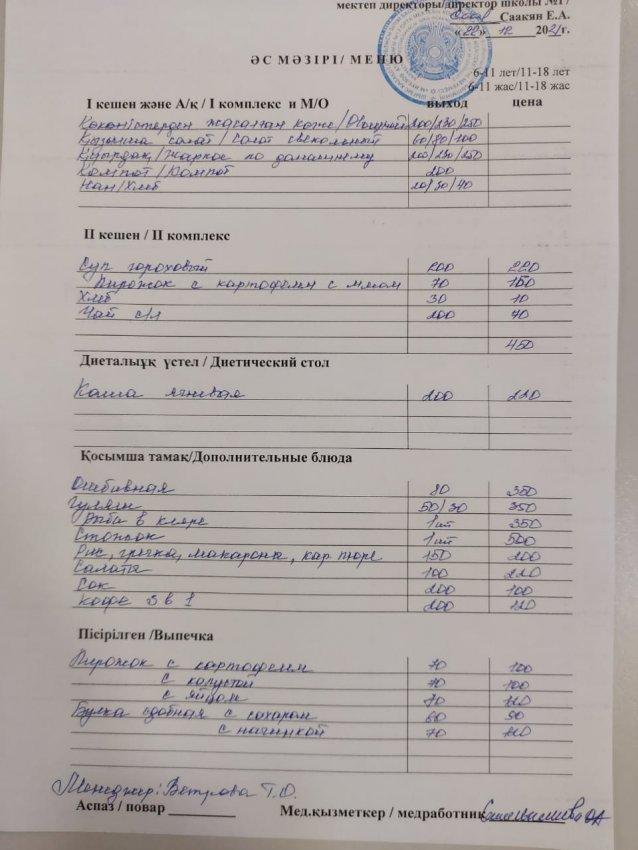 мектеп директоры/директор школы №17
Саакян Е.А.
«22» 12 2021г.
ӘС МӘЗІРІ/ МЕНЮ
6-11 лет/11-18 лет
6-11 жас/11-18 жас
I кешен және А/қ / I комплекс и М/О выход цена
Көкөністерден жасалған көже/Овощной 200/230/250
Қызылша салат/Салат свекольный 60/80/100
Қуырдақ/Жаркое по домашнему 200/230/250
Компот/Компот 200
Нан/Хлеб 20/30/40
II кешен / II комплекс
Суп гороховый 200 220
Пирожок с картофелем с мясом 70 150
Хлеб 30 10
Чай с/л 200 70
450
Диеталыұқ үстел / Диетический стол
Каша ячневая 200 220
Қосымша тамақ/Дополнительные блюда
Отбивная 80 350
Гуляш 50/30 350
Рыба в кляре 1шт 350
Стожок 1шт 500
Рис, гречка, макароны, кар пюре 150 200
Салаты 100 220
Сок 200 100
Кофе 3 в 1 200 120
Пісірілген /Выпечка
Пирожок с картофелем 70 100
с капустой 70 100
с яйцом 70 120
Булка сдобная с сахаром 60 90
с начинкой 70 120
Менеджер: Ветрова Т.О.
Аспаз / повар
Мед.қызметкер / медработник